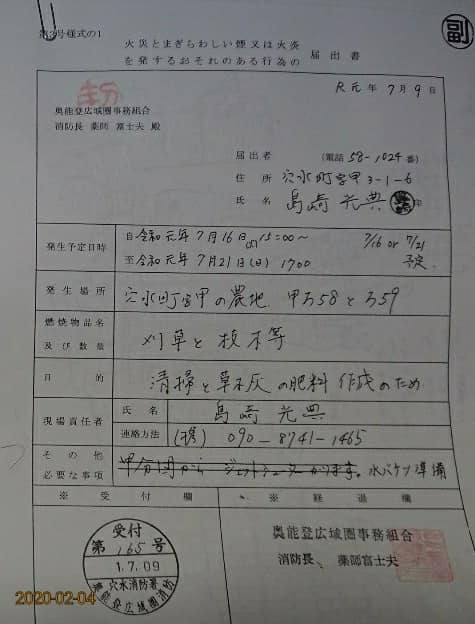 副
第3号様式の1
火災とまぎらわしい煙又は火炎
を発するおそれのある行為の 届出書
R元年 7月 9日
奥能登広域圏事務組合
消防長 薬師 富士夫 殿
届出者 (電話 58-1024番)
住所 穴水町字甲3-1-6
氏名 島崎 光典
発生予定日時
自 令和元年 7月16日(火) 15:00〜
至 令和元年 7月21日(日) 1700
7/16 or 7/21
予定
発生場所
穴水町字甲の農地 甲ろ58とろ59
燃焼物品名
及び数量
刈草と枝木等
目的
清掃と草木灰の肥料作成のため
現場責任者
氏名 島崎 光典
連絡方法 (携) 090-8741-1465
その他
必要な事項
甲分団から ジェットシューターかります。水バケツ準備
※ 受付欄 ※ 経過欄
受付
第165号
1.7.09
穴水消防署
奥能登広域圏消防
奥能登広域圏事務組合
消防長 薬師富士夫
2020-02-04